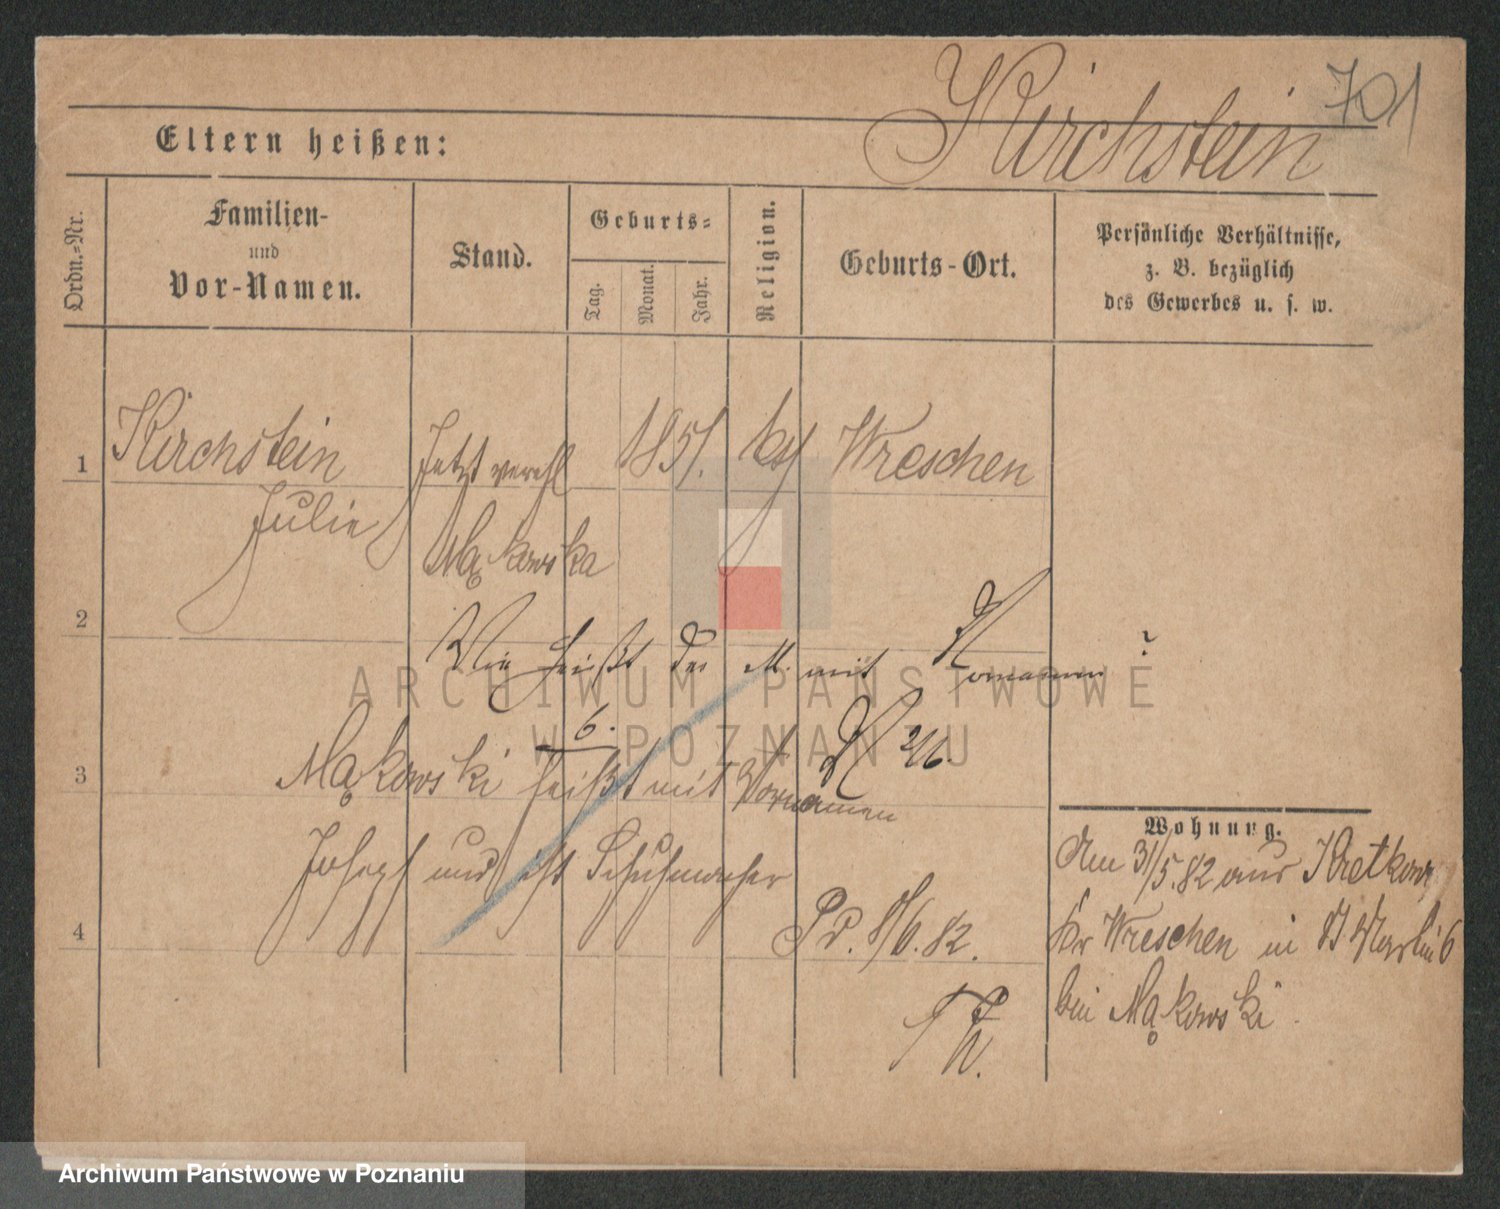 701
Kirchstein
Eltern heißen:
Ordn.=Nr.
Familien-
und
Vor-Namen.
Stand.
Geburts=
Tag.
Monat.
Jahr.
Religion.
Geburts-Ort.
Persönliche Verhältnisse,
z. B. bezüglich
des Gewerbes u. s. w.
1
Kirchstein
Jetzt verehl
1851.
Wreschen
Julie
Mąkowska
2
Wie heißt der M. mit Vornamen?
6.
3
Mąkowski heißt mit Vornamen
Joseph und ist Schuhmacher
4
Pd. 8/6. 82.
Wohnung.
Am 31/5. 82 aus
Kr Wreschen in
bei Mąkowski.
ARCHIWUM PAŃSTWOWE
W POZNANIU
Archiwum Państwowe w Poznaniu